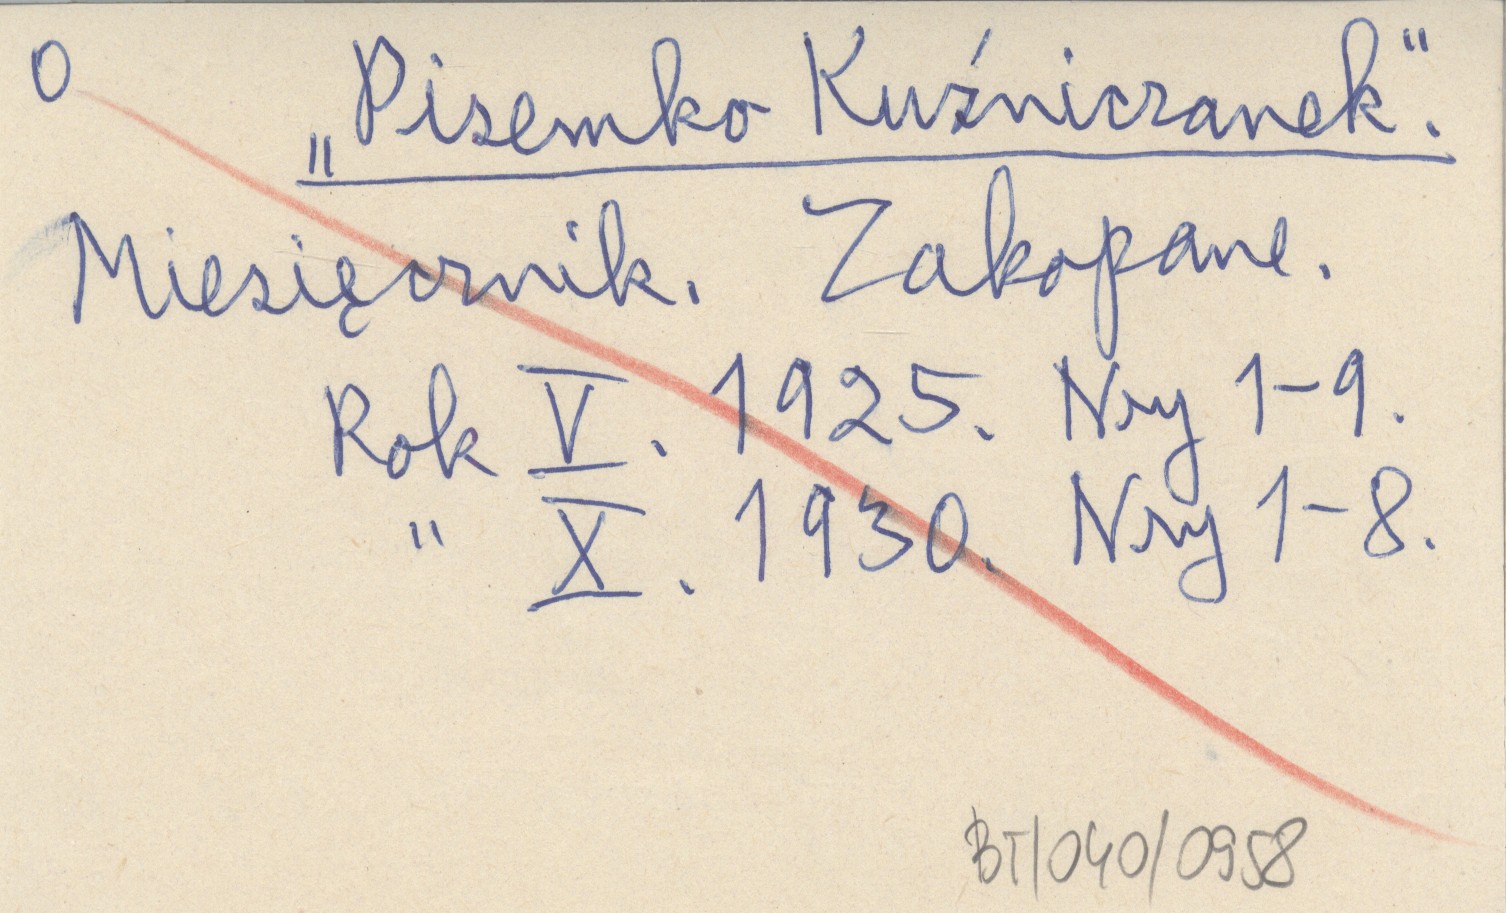 O
„Pisemko Kuźniczanek".
Miesięcznik. Zakopane.
Rok V. 1925. Nry 1-9.
" X. 1930. Nry 1-8.
BT/040/0958